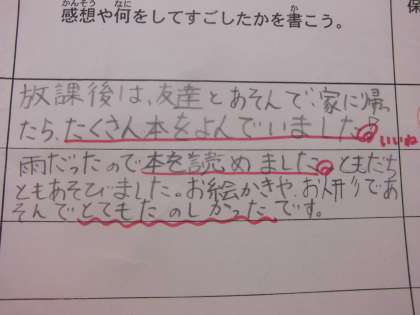 かんそう なに か
感想や何をしてすごしたかを書こう。
保
放課後は、友達とあそんで、家に帰
たら、たくさん本をよんでいました。
いいね
雨だったので本を読めました。ともだち
ともあそびました。お絵かきや、おであ
そんでとてもたのしかったです。